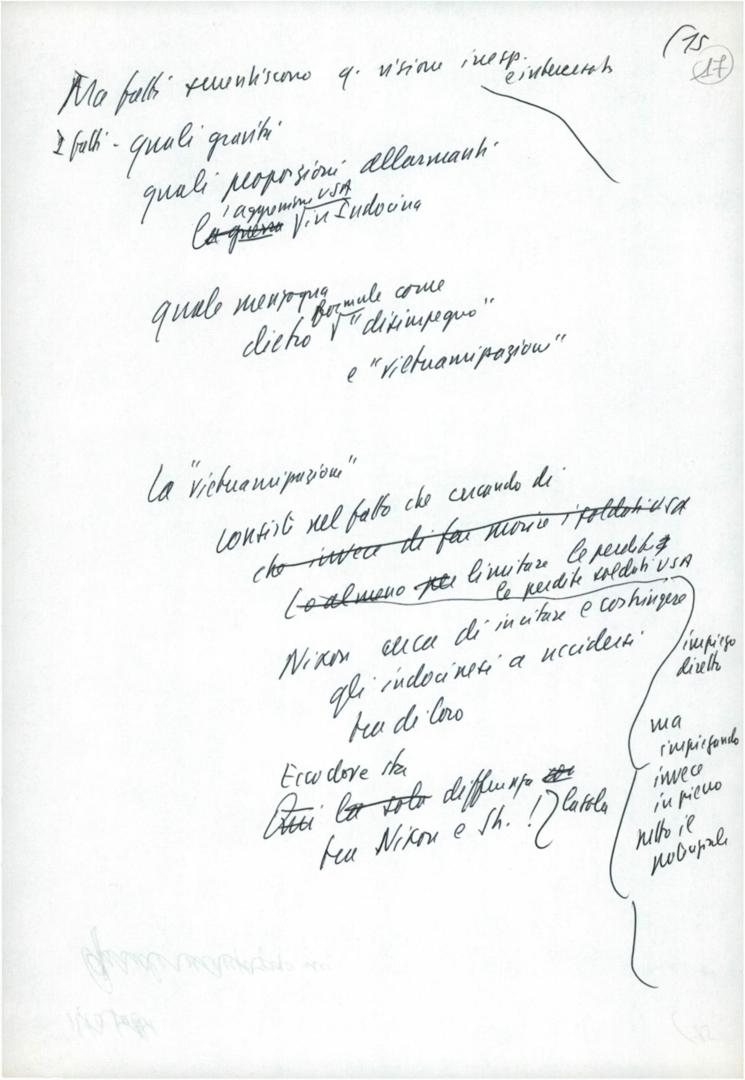 (15
17
Ma fatti smentiscono q. visione inesp.
e interessata
I fatti - quali gravità
quali proporzioni allarmanti
l'aggressione USA
la guerra in Indocina
quale menzogna
formule come
dietro "disimpegno"
e "vietnamizzazione"
La "vietnamizzazione"
consiste nel fatto che cercando di
che invece di far morire i soldati USA
(o almeno per limitare le perdite
le perdite soldati USA
Nixon cerca di incitare e costringere
gli indocinesi a uccidersi
tra di loro
impiego
diretto
ma
impiegando
invece
in pieno
tutto il
potenziale
Ecco dove sta
Qui la sola differenza
la sola
tra Nixon e Sh. !